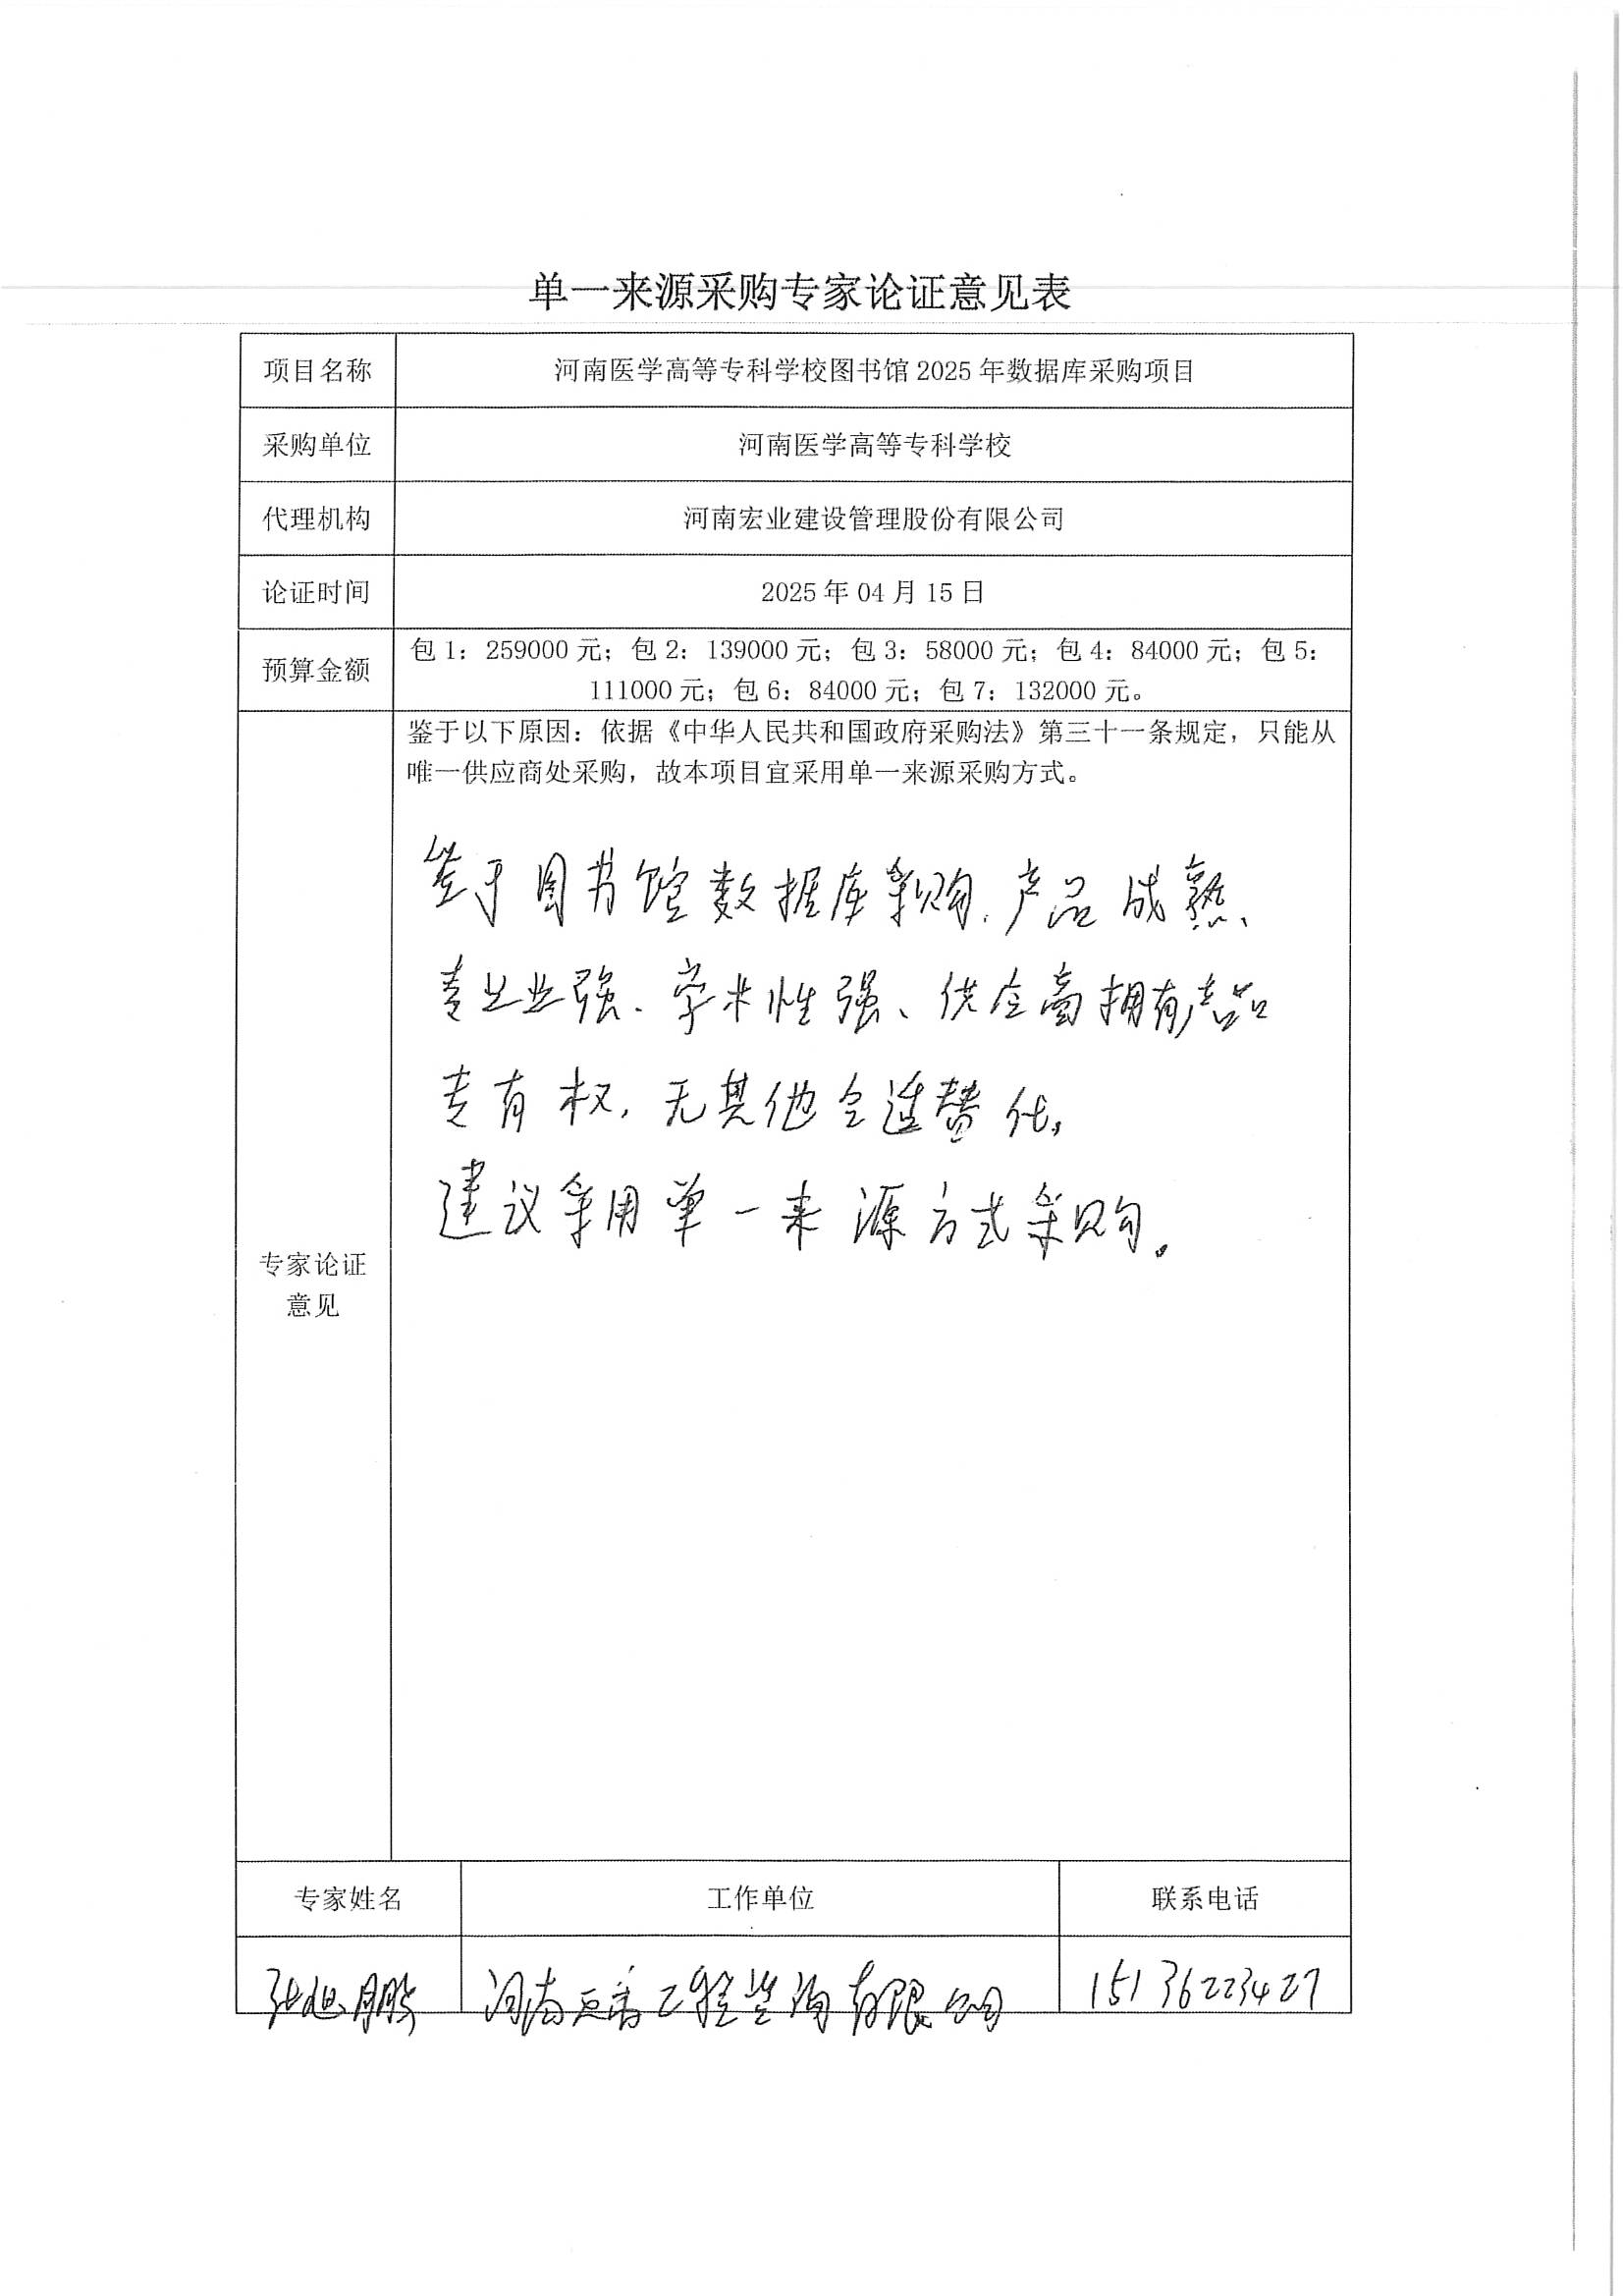 单一来源采购专家论证意见表
项目名称 河南医学高等专科学校图书馆 2025 年数据库采购项目
采购单位 河南医学高等专科学校
代理机构 河南宏业建设管理股份有限公司
论证时间 2025 年 04 月 15 日
预算金额 包 1：259000 元；包 2：139000 元；包 3：58000 元；包 4：84000 元；包 5：
111000 元；包 6：84000 元；包 7：132000 元。
鉴于以下原因：依据《中华人民共和国政府采购法》第三十一条规定，只能从
唯一供应商处采购，故本项目宜采用单一来源采购方式。
鉴于图书馆数据库采购，产品成熟、
专业强、学术性强、供应商拥有产品
专有权，无其他合适替代，
建议采用单一来源方式采购。
专家论证
意见
专家姓名 工作单位 联系电话
张旭鹏 河南 工程咨询有限公司 15136223427